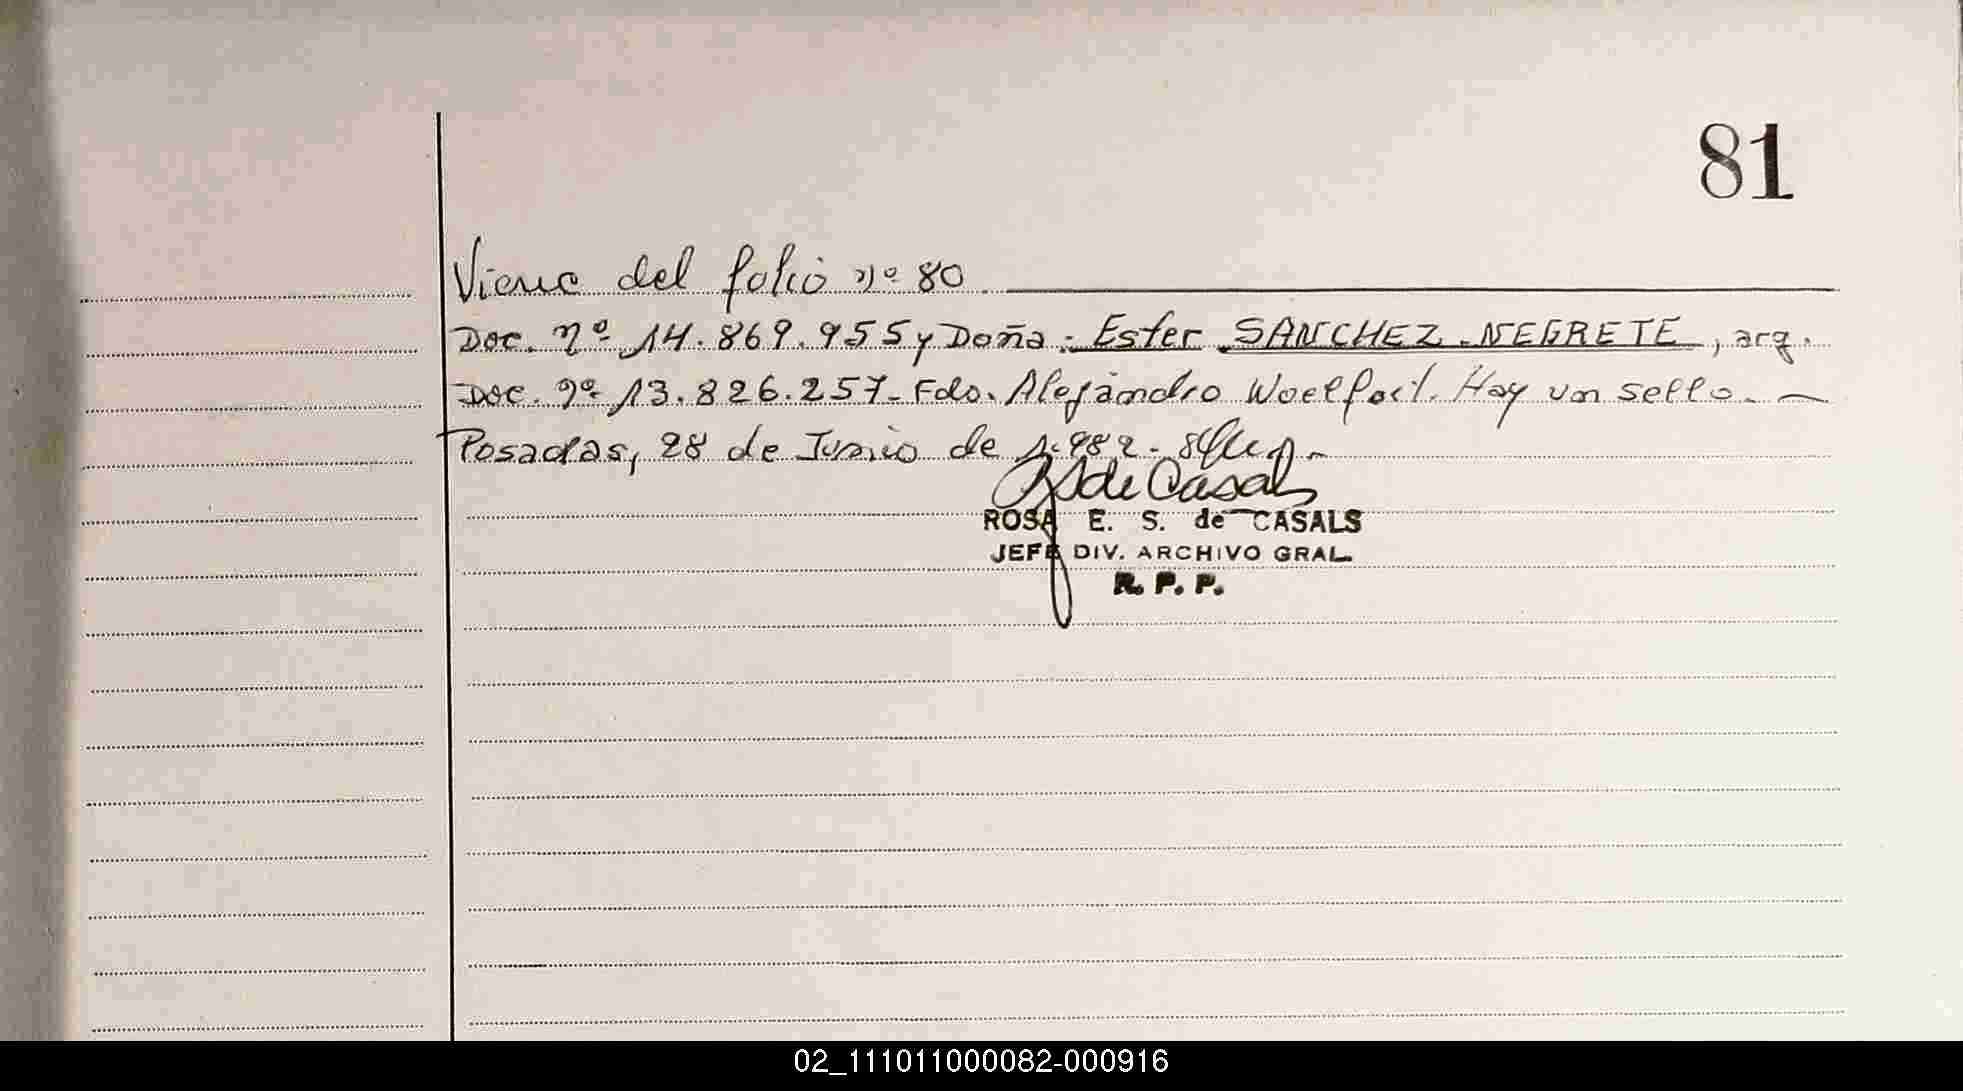 81
Viene del folio nº 80
Doc. nº 14.869.955 y Doña: Ester SANCHEZ NEGRETE, arg.
Doc. nº 13.826.257- Fdo. Alejandro Hay un sello.-
Posadas, 28 de Junio de 1.982.-
de Casals
ROSA E. S. de CASALS
JEFE DIV. ARCHIVO GRAL.
R. P. P.
02_111011000082-000916